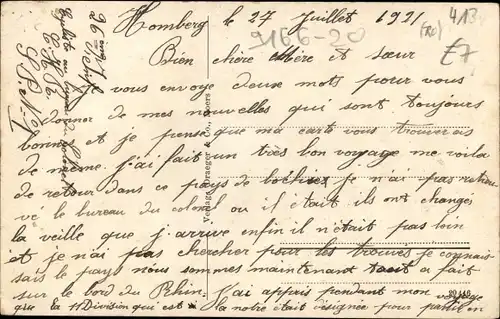 Homberg le 27 Juillet 1921
Bien chère Mère et sœur
vous envoye deux mots pour vous
donner de mes nouvelles qui sont toujours
bonne et je pense que ma carte vous trouverais
de même. j'ai fait un très bon voyage me voila
de retour dans ce pays de je n'ai pas retrou
vé le bureau du colonel ou il était ils ont changés
la veille que j'arrive enfin il n'était pas loin
et je n'ai pas chercher pour les trouver je connais
sais le pays nous sommes maintenant tout a fait
sur le bord du Rhin. J'ai appris pendant mon voyage
que la 11 Division qui est la notre était désignée pour partir en
S.P. N°
9166-20
413
£7
Verlag Draeger & Co.,